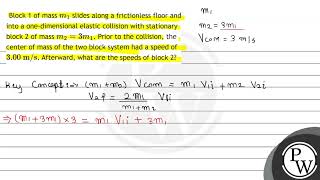 Block 1 of mass m₁ slides along a frictionless floor and
into a one-dimensional elastic collision with stationary
block 2 of mass m₂ = 3m₁. Prior to the collision, the
center of mass of the two block system had a speed of
3.00 m/s. Afterward, what are the speeds of block 2?
m₁
m₂ = 3m₁
V_COM = 3 m/s
Key Concept:- (m₁+m₂) V_COM = m₁ V₁i + m₂ V₂i
V₂f = 2m₁/(m₁+m₂) V₁i
⇒ (m₁+3m₁)×3 = m₁ V₁i + 3m₁
PW